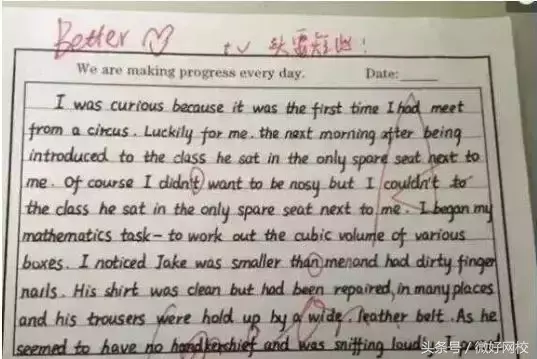 Better t v 头要短些!
We are making progress every day. Date:
I was curious because it was the first time I had meet
from a circus. Luckily for me. the next morning after being
introduced to the class he sat in the only spare seat next to
me. Of course I didn't want to be nosy but I couldn't to
the class he sat in the only spare seat next to me. I began my
mathematics task- to work out the cubic volume of various
boxes. I noticed Jake was smaller than men and had dirty finger
nails. His shirt was clean but had been repaired, in many places
and his trousers were hold up by a wide, leather belt. As he
seemed to have no handkerchief and was sniffing loud
头条号/微好网校